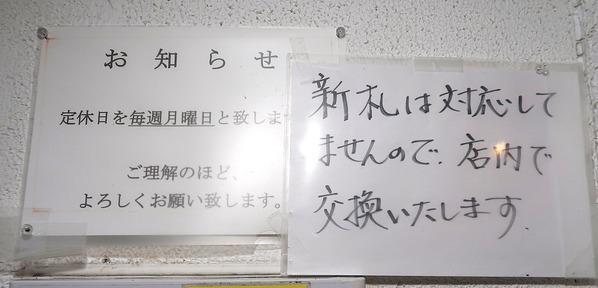 お知らせ
定休日を毎週月曜日と致しま
ご理解のほど、
よろしくお願い致します。
新札は対応して
ませんので、店内で
交換いたします.